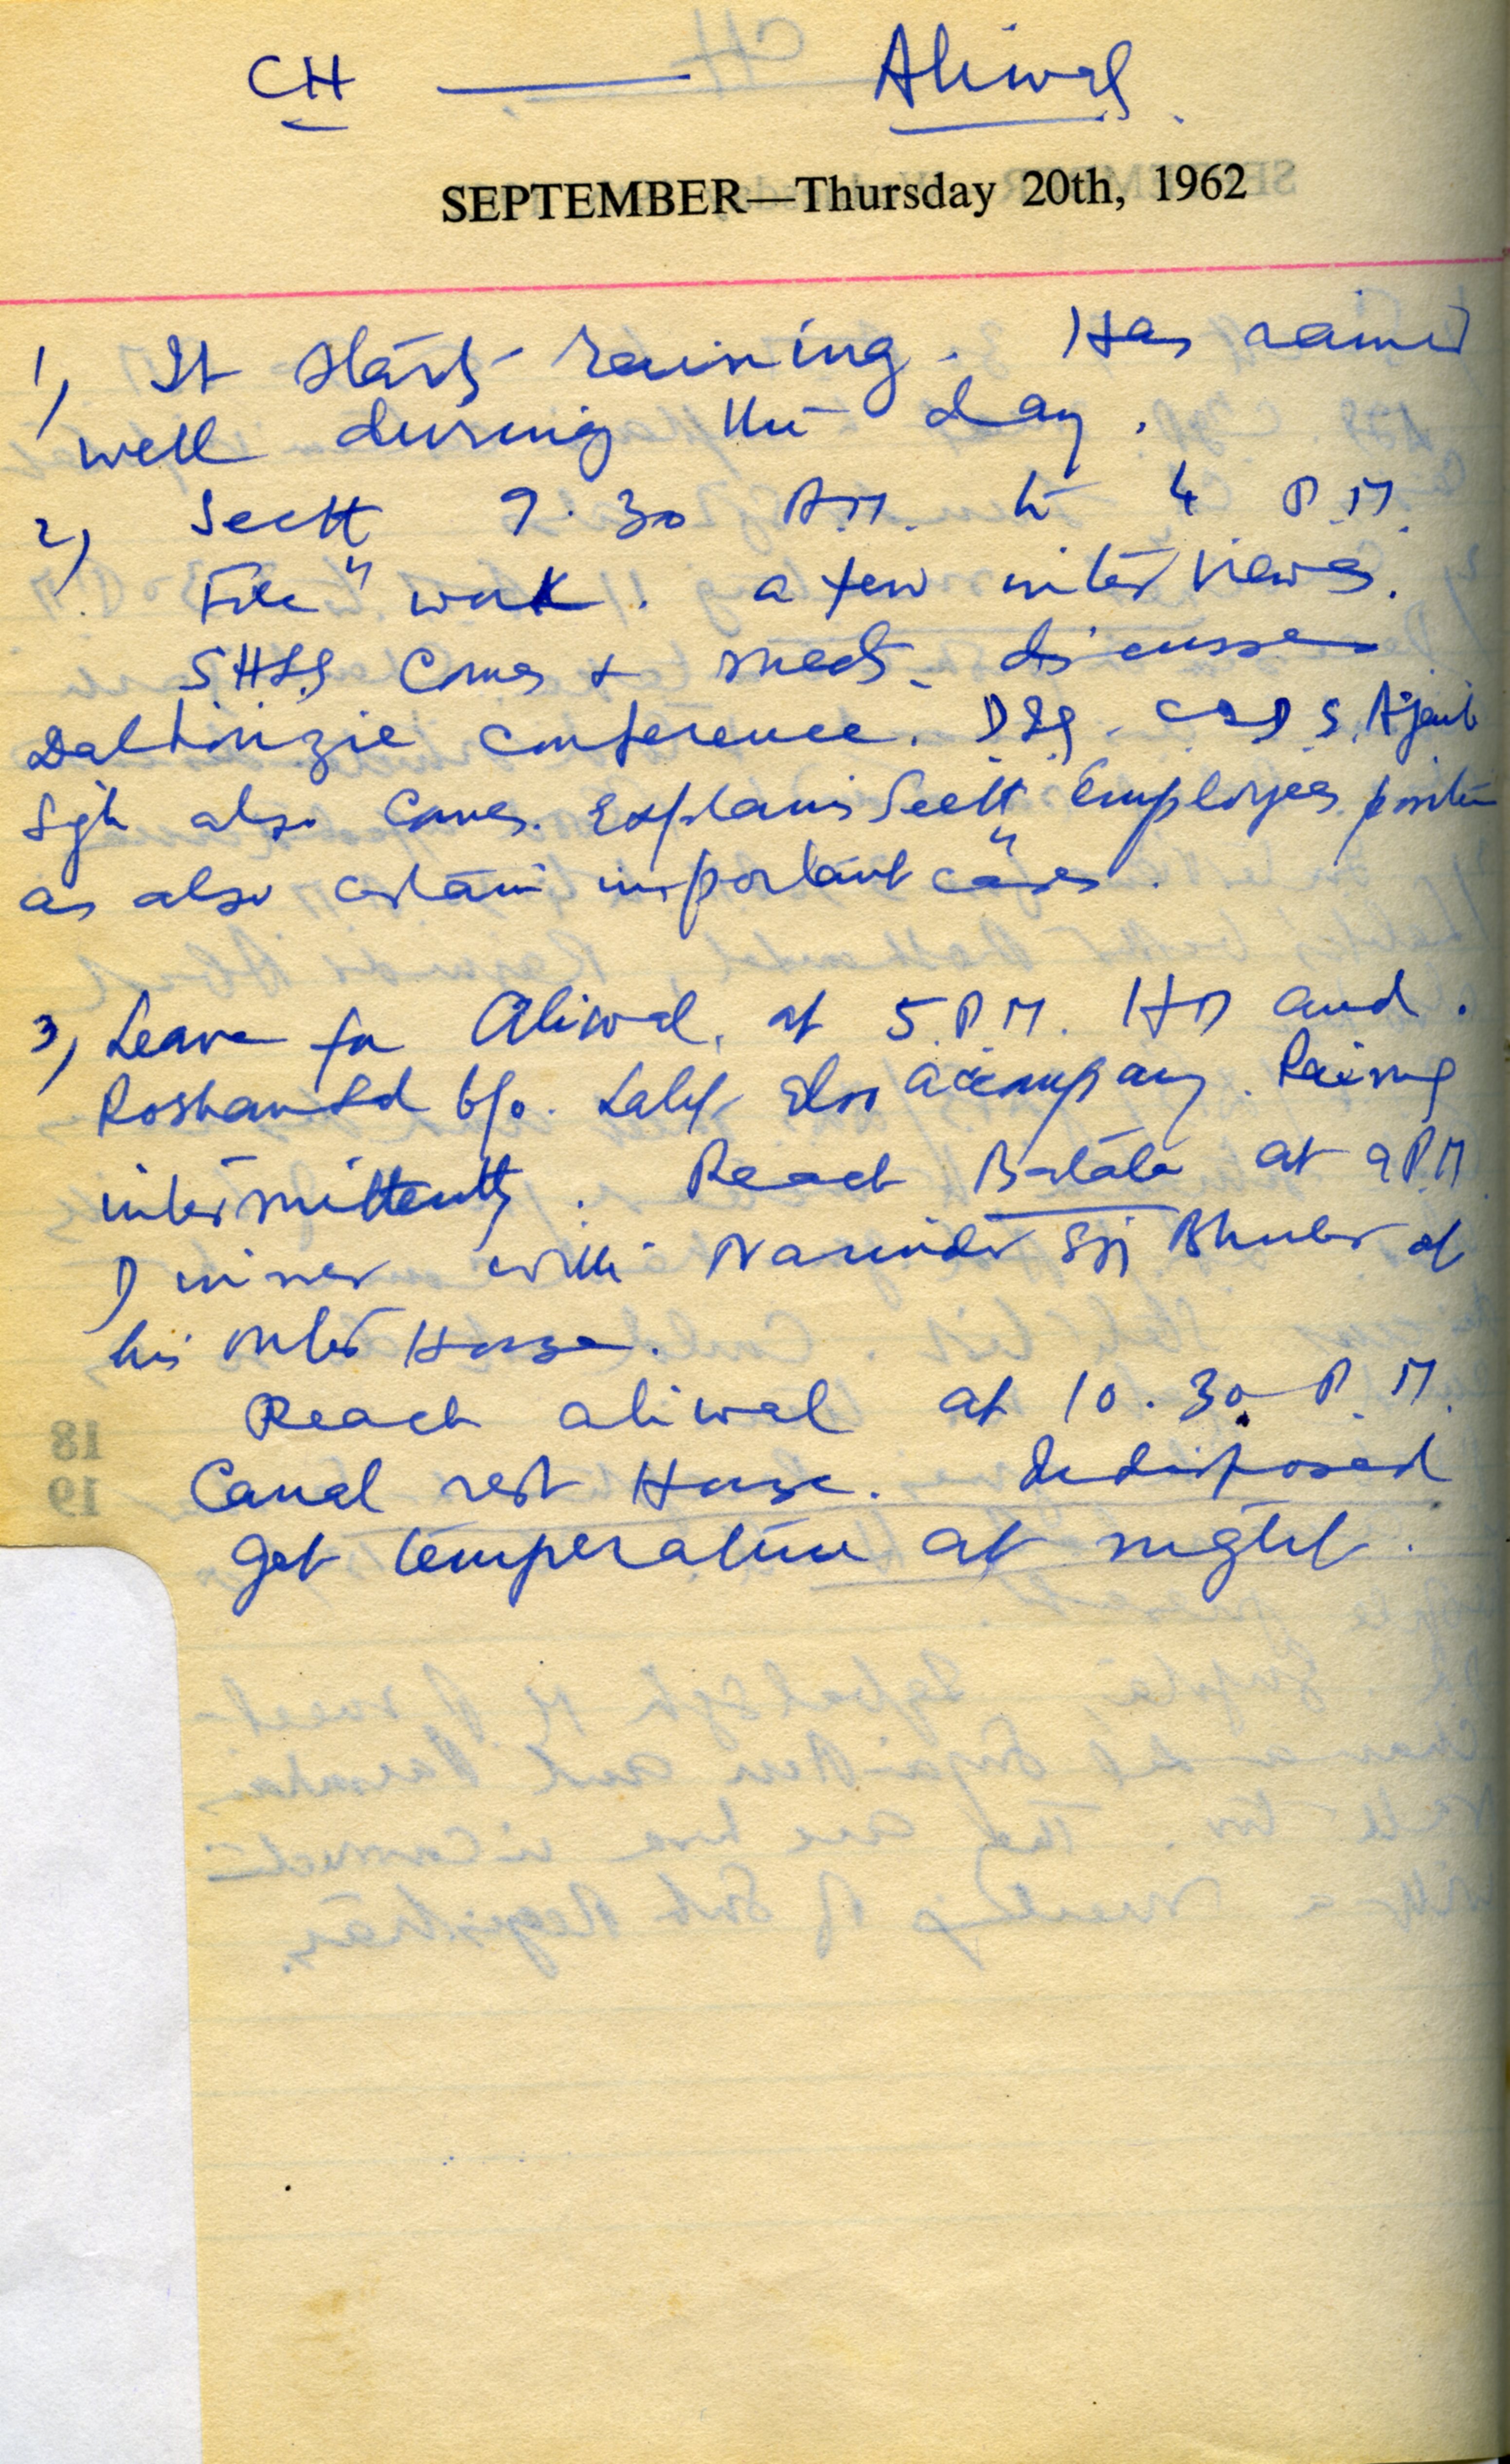 CH —— Aliwal
SEPTEMBER—Thursday 20th, 1962
1) It starts raining. Has rained
well during the day.
2) Sectt 9.30 A.M. to 4 P.M.
File work. a few interviews.
Comes & meets. discusses
Dalhousie conference. DIG. CID S. Ajaib
Sgh also comes. Explains Sectt Employees position
as also certain important cases.
3) Leave for Aliwal. at 5 P.M. HD and.
Roshan Lal b/o. Lalit also accompany. Raining
intermittently. Reach Batala at 9 P.M
Dinner with Narinder Sgh Bhuler at
his House.
Reach aliwal at 10.30 P.M.
Canal rest House. Indisposed
get temperature at night.
18
19